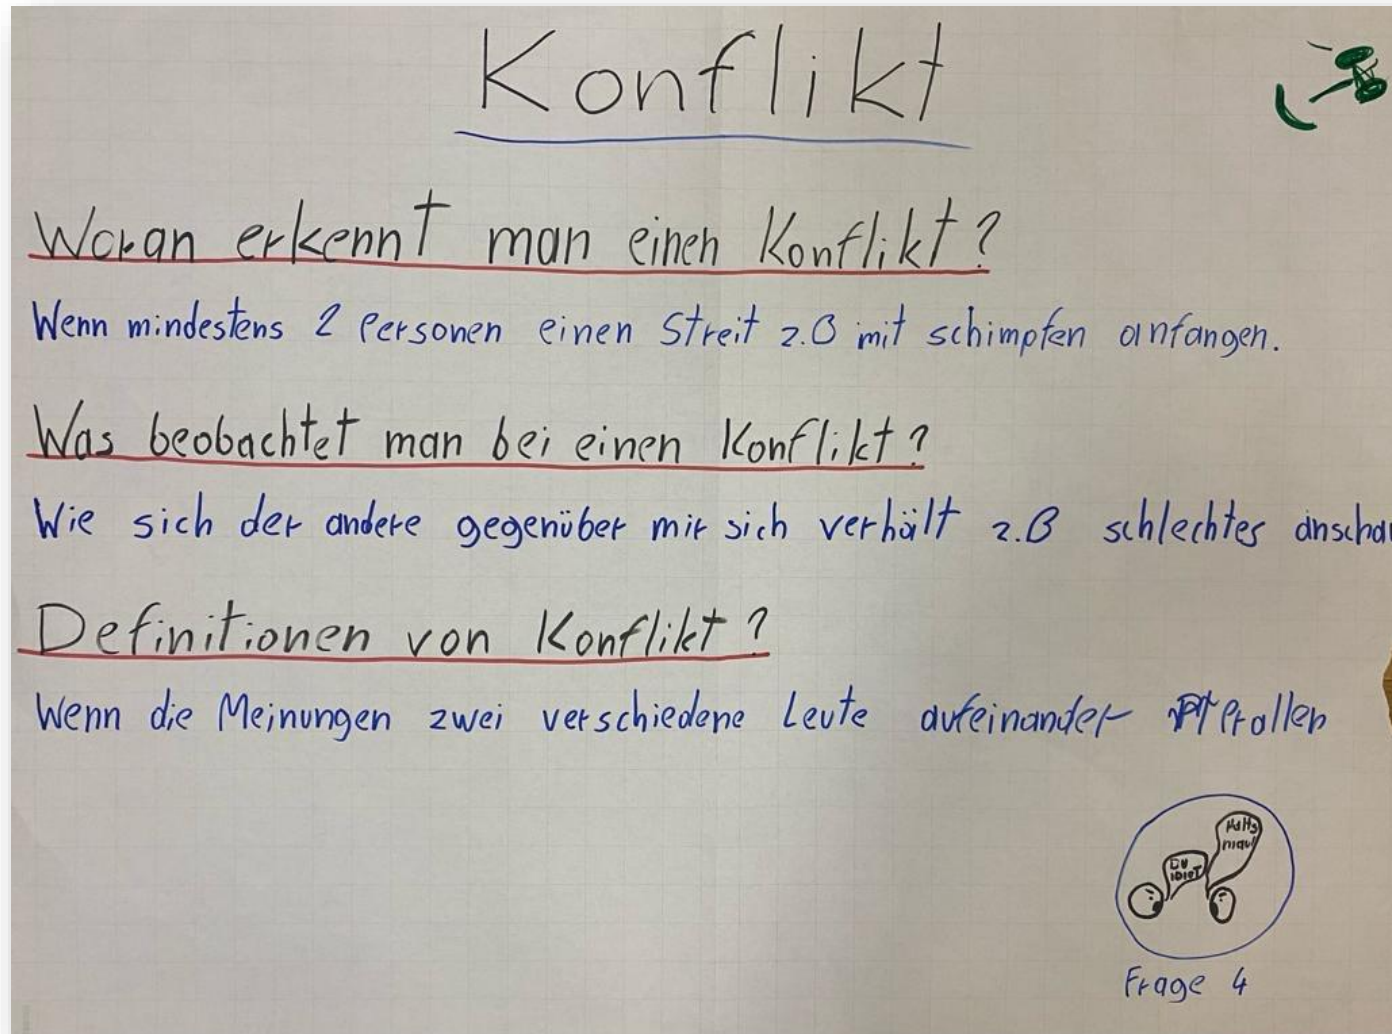 Konflikt
Woran erkennt man einen Konflikt?
Wenn mindestens 2 Personen einen Streit z.B mit schimpfen anfangen.
Was beobachtet man bei einen Konflikt?
Wie sich der andere gegenüber mir sich verhält z.B schlechtes anschau
Definitionen von Konflikt?
Wenn die Meinungen zwei verschiedene Leute aufeinander
DU
IDIOT
maul
Frage 4